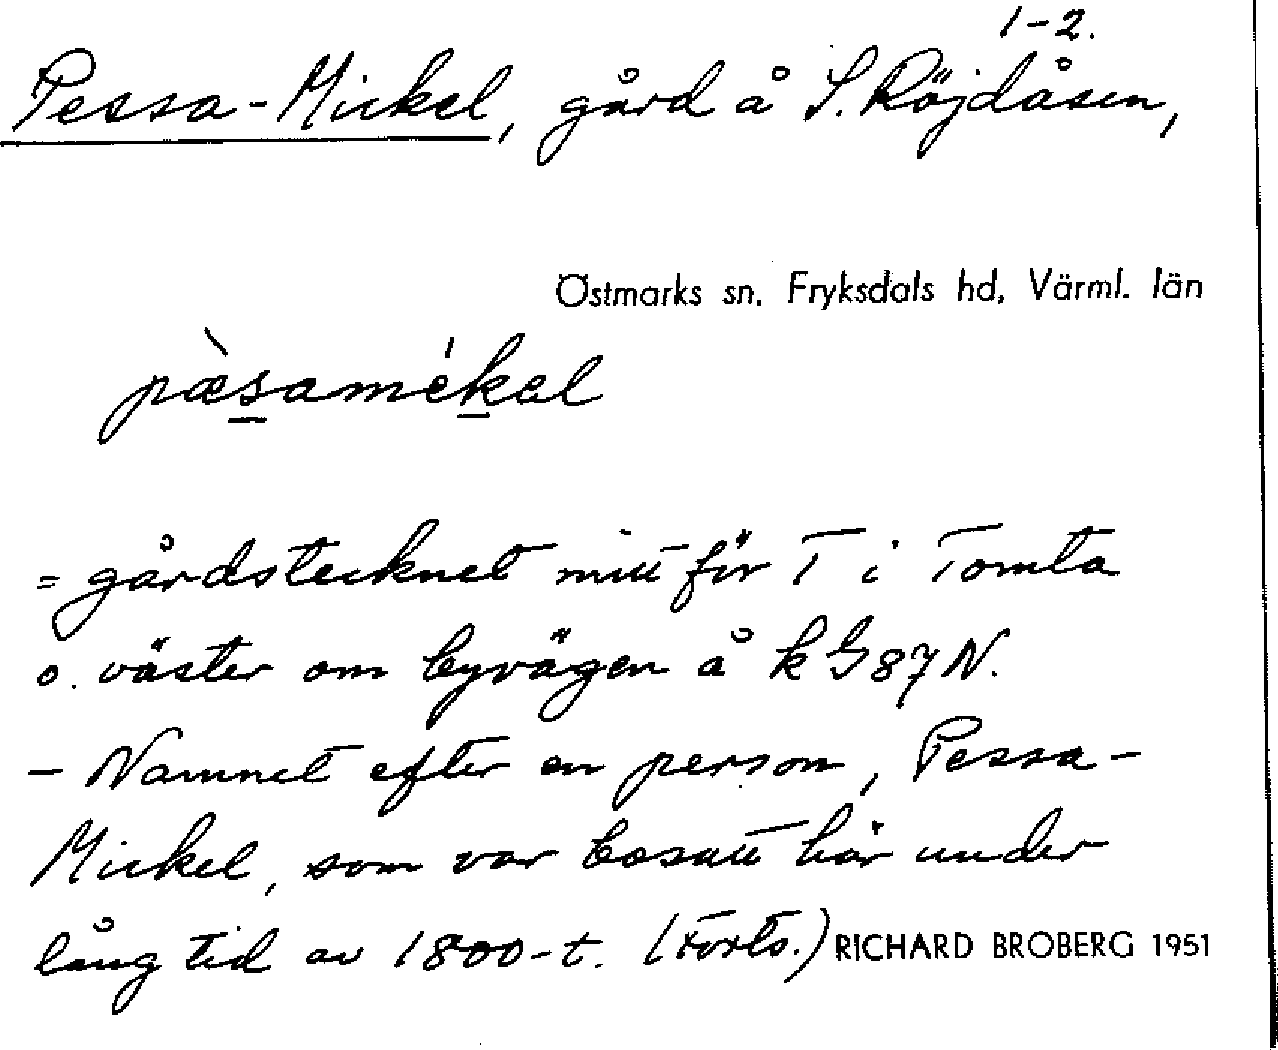 1-2.
Pessa-Mickel, gård å S. Röjdåsen,
Östmarks sn. Fryksdals hd, Värml. län
pæ̀samékəl
= gårdstecknet mitt för T i Tomta
o. väster om byvägen å k G 87 N.
- Namnet efter en person, Pessa-
Mickel, som var bosatt här under
lång tid av 1800-t. (Forts.) RICHARD BROBERG 1951